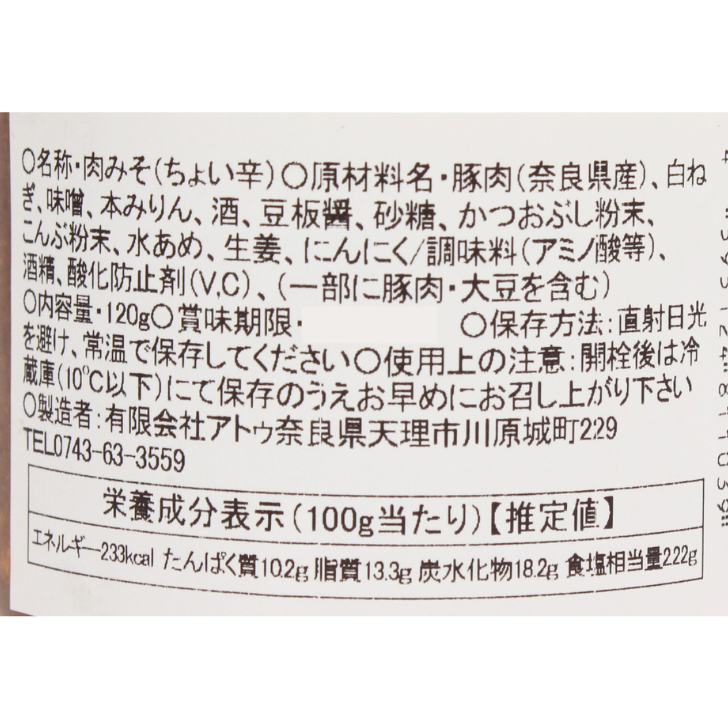 ○名称・肉みそ(ちょい辛)○原材料名・豚肉(奈良県産)、白ね
ぎ、味噌、本みりん、酒、豆板醤、砂糖、かつおぶし粉末、
こんぶ粉末、水あめ、生姜、にんにく/調味料(アミノ酸等)、
酒精、酸化防止剤(V.C)、(一部に豚肉・大豆を含む)
○内容量・120g○賞味期限・ ○保存方法:直射日光
を避け、常温で保存してください○使用上の注意:開栓後は冷
蔵庫(10℃以下)にて保存のうえお早めにお召し上がり下さい
○製造者:有限会社アトゥ奈良県天理市川原城町229
TEL0743-63-3559
栄養成分表示(100g当たり)【推定値】
エネルギー233kcal たんぱく質10.2g 脂質13.3g 炭水化物18.2g 食塩相当量2.22g